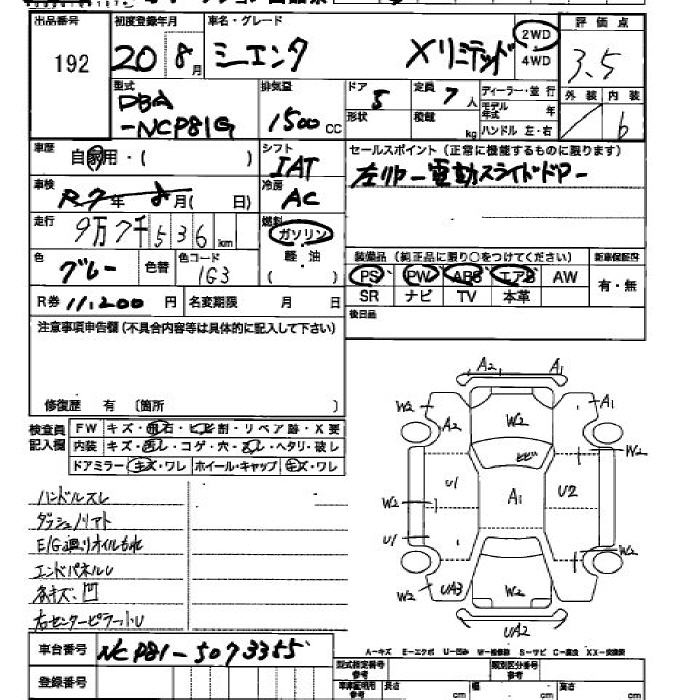 出品番号 初度登録年月 車名・グレード 2WD 評価点
192 20 8月 シエンタ Xリミテッド 4WD 3.5
型式 排気量 ドア 定員 ディーラー・並行 外装 内装
DBA 5 7人 モデル年式 年 6
-NCP81G 1500cc 形状 積載 kg ハンドル 左・右
車歴 自家用・( ) シフト セールスポイント(正常に機能するものに限ります)
IAT
車検 R7年 8月( 日) 冷房 AC 左リヤー電動スライドドアー
走行 9万7千536km 燃料 ガソリン
軽油
( )
色 グレー 色替 色コード 1G3
装備品(純正品に限り○をつけてください) 新車保証書
PS PW ABS エアB AW 有・無
SR ナビ TV 本革
R券 11,200円 名変期限 月 日
後日品
注意事項申告欄(不具合内容等は具体的に記入して下さい)
修復歴 有 〔箇所 〕
検査員記入欄
FW キズ・飛石・ヒビ割・リペア跡・X要
内装 キズ・汚レ・コゲ・穴・ ・ヘタリ・破レ
ドアミラー キズ・ワレ ホイール・キャップ キズ・ワレ
ハンドルスレ
ダッシュノリアト
E/G廻りオイルもれ
エンドパネルU
各キズ、凹
右センターピラーU
A2 A1
W2 A2 W2 A1
ヒビ W2
U1 A1 U2
W2
U1 W2
W2 UA3 W2 W2
UA2
A-キズ E-エクボ U-凹み W-補修跡 S-サビ C-腐食 XX-交換済
車台番号 NCP81-5073355
登録番号
型式指定番号 参考 類別区分番号 参考
車庫証明用 参考 長さ cm 幅 cm 高さ cm